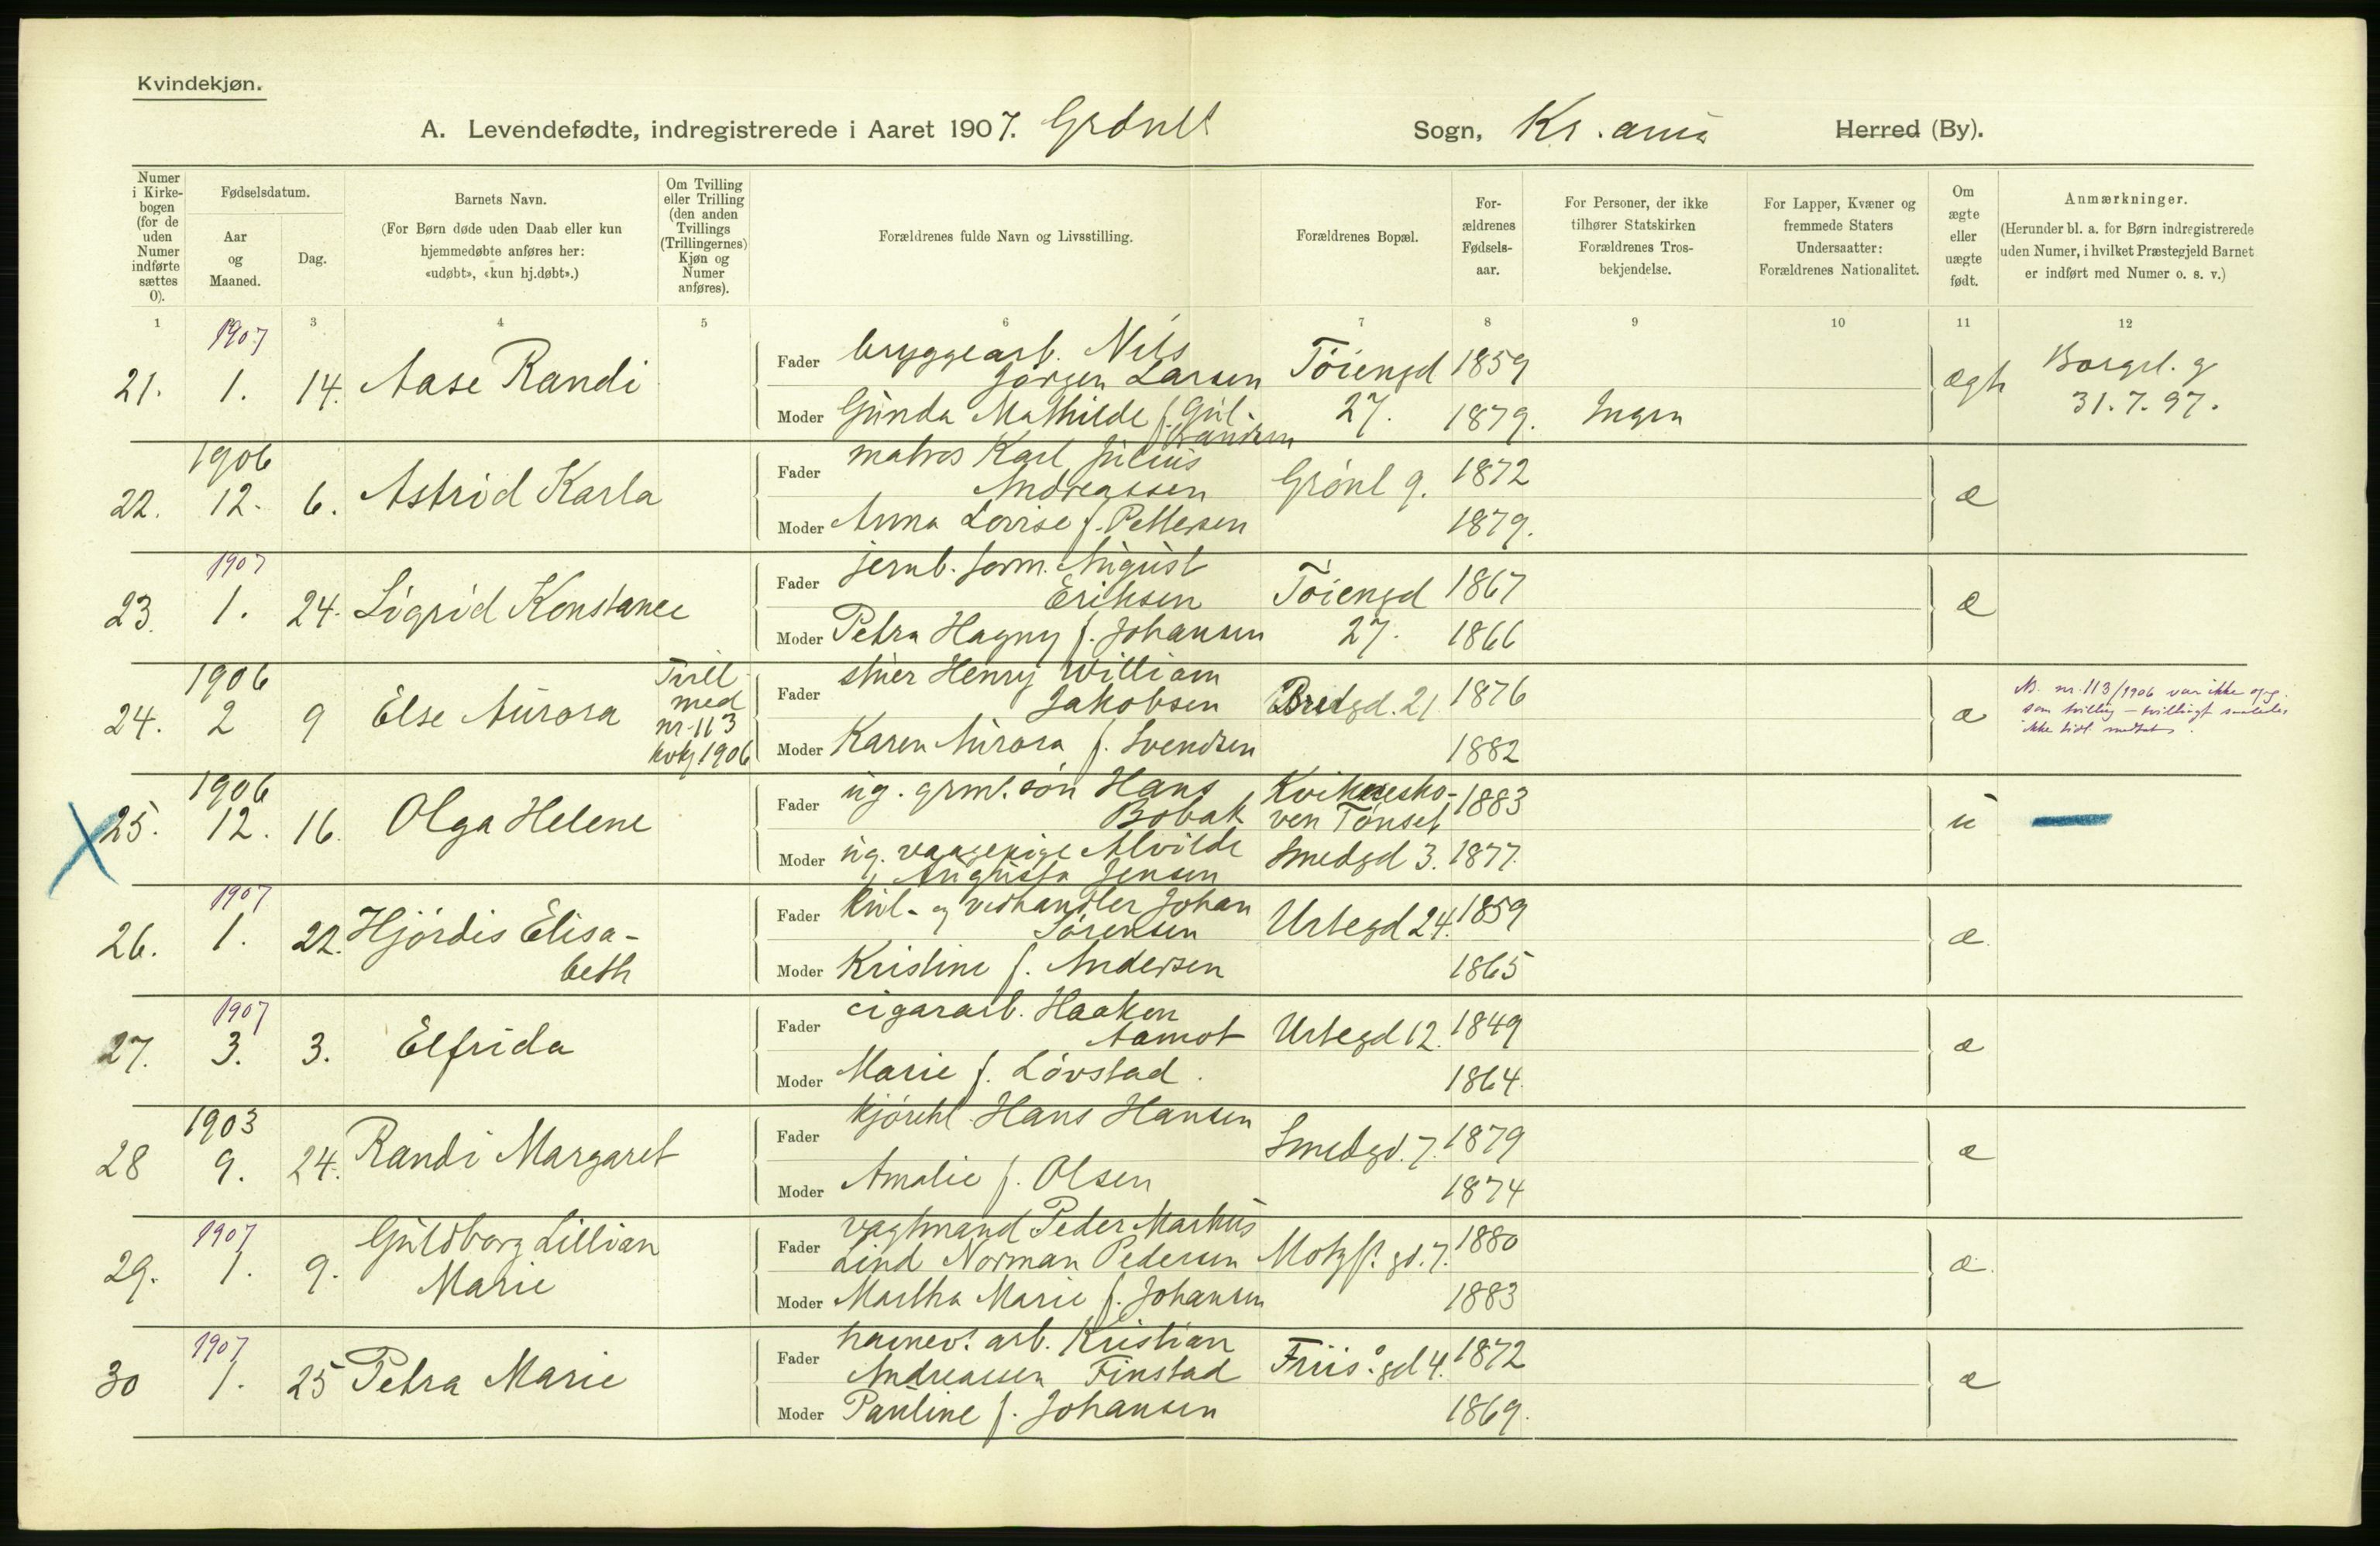 Kvindekjøn.
A. Levendefødte, indregistrerede i Aaret 1907. Grønl Sogn, Kr.ania Herred (By).
Numer i Kirkebogen (for de uden Numer indførte sættes 0).
Fødselsdatum.
Aar og Maaned.
Dag.
Barnets Navn.
(For Børn døde uden Daab eller kun hjemmedøbte anføres her: «udøbt», «kun hj.døbt».)
Om Tvilling eller Trilling (den anden Tvillings (Trillingernes) Kjøn og Numer anføres).
Forældrenes fulde Navn og Livsstilling.
Forældrenes Bopæl.
Forældrenes Fødselsaar.
For Personer, der ikke tilhører Statskirken Forældrenes Trosbekjendelse.
For Lapper, Kvæner og fremmede Staters Undersaatter: Forældrenes Nationalitet.
Om ægte eller uægte født.
Anmærkninger.
(Herunder bl. a. for Børn indregistrerede uden Numer, i hvilket Præstegjeld Barnet er indført med Numer o. s. v.)
1 3 4 5 6 7 8 9 10 11 12
1907
21. 1. 14. Aase Randi
Fader bryggearb. Nils Jørgen Larsen Tøiengd 1859
Moder Gunda Mathilde f. Gulbrandsen 27. 1879. Ingen
ægte Borgel. g 31.7.97.
1906
22. 12. 6. Astrid Karla
Fader matros Karl Julius Andreassen Grønl 9. 1872
Moder Anna Lovise f. Pettersen 1879.
æ
1907
23. 1. 24. Sigrid Konstance
Fader jernb. form. August Eriksen Tøiengd 1867
Moder Petra Hagny f. Johansen 27. 1866
æ
1906
24. 2 9 Else Aurora
Tvill med nr. 113 1906
Fader Henry William Jakobsen Bredgd. 21. 1876
Moder Karen Aurora f. Svendsen 1882
æ
N. nr. 113/1906 var ikke opg. som tvilling – ikke
1906
25. 12. 16. Olga Helene
Fader ug. grmd. søn Hans Bobak Kvikneskoven Tønset 1883
Moder ug. Alvilde Augusta Jensen Smedgd 3. 1877.
u
1907
26. 1. 22. Hjørdis Elisabeth
Fader kul- og vedhandler Johan Sørensen Urtegd 24. 1859
Moder Kristine f. Andersen 1865
æ
1907
27. 3. 3. Elfrida
Fader cigararb. Haaken Aamot Urtegd 12. 1849
Moder Marie f. Løvstad. 1864.
æ
1903
28 9. 24. Randi Margaret
Fader Hans Hansen Smedgd. 7. 1879
Moder Amalie f. Olsen 1874
æ
1907
29. 1. 9. Guldborg Lillian Marie
Fader vagtmand Peder Markus Lind Norman Pedersen Motzf. gd. 7. 1880
Moder Martha Marie f. Johansen 1883
æ
1907
30 1. 25 Petra Marie
Fader havnev. arb. Kristian Andreassen Finstad Friis. gd 4. 1872
Moder Pauline f. Johansen 1869.
æ